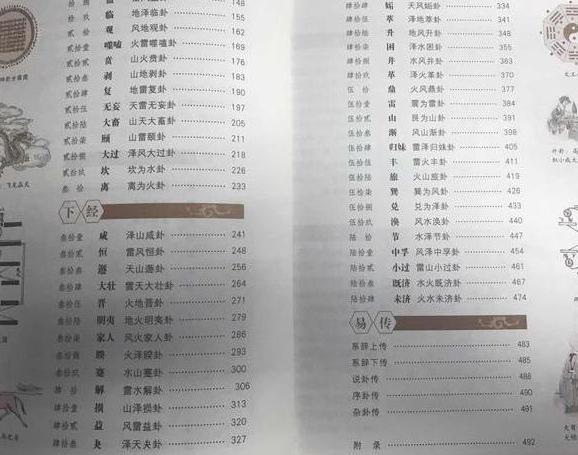 148
拾玖 临 地泽临卦 155
贰拾 观 风地观卦 162
贰拾壹 噬嗑 火雷噬嗑卦 169
贰拾贰 贲 山火贲卦 176
贰拾叁 剥 山地剥卦 183
贰拾肆 复 地雷复卦 190
贰拾伍 无妄 天雷无妄卦 197
贰拾陆 大畜 山天大畜卦 205
贰拾柒 颐 山雷颐卦 211
贰拾捌 大过 泽风大过卦 218
贰拾玖 坎 坎为水卦 226
叁拾 离 离为火卦 233
下经
叁拾壹 咸 泽山咸卦 241
叁拾贰 恒 雷风恒卦 248
叁拾叁 遯 天山遯卦 256
叁拾肆 大壮 雷天大壮卦 264
叁拾伍 晋 火地晋卦 271
叁拾陆 明夷 地火明夷卦 279
叁拾柒 家人 风火家人卦 286
叁拾捌 睽 火泽睽卦 293
叁拾玖 蹇 水山蹇卦 300
肆拾 解 雷水解卦 306
肆拾壹 损 山泽损卦 313
肆拾贰 益 风雷益卦 320
肆拾叁 夬 泽天夬卦 327
肆拾肆 姤 天风姤卦 334
肆拾伍 萃 泽地萃卦 341
肆拾陆 升 地风升卦 348
肆拾柒 困 泽水困卦 355
肆拾捌 井 水风井卦 363
肆拾玖 革 泽火革卦 370
伍拾 鼎 火风鼎卦 377
伍拾壹 雷 震为雷卦 384
伍拾贰 山 艮为山卦 391
伍拾叁 渐 风山渐卦 398
伍拾肆 归妹 雷泽归妹卦 405
伍拾伍 丰 雷火丰卦 411
伍拾陆 旅 火山旅卦 419
伍拾柒 巽 巽为风卦 427
伍拾捌 兑 兑为泽卦 433
伍拾玖 涣 风水涣卦 440
陆拾 节 水泽节卦 447
陆拾壹 中孚 风泽中孚卦 454
陆拾贰 小过 雷山小过卦 461
陆拾叁 既济 水火既济卦 467
陆拾肆 未济 火水未济卦 474
易传
系辞上传 483
系辞下传 485
说卦传 488
序卦传 490
杂卦传 491
附录 492